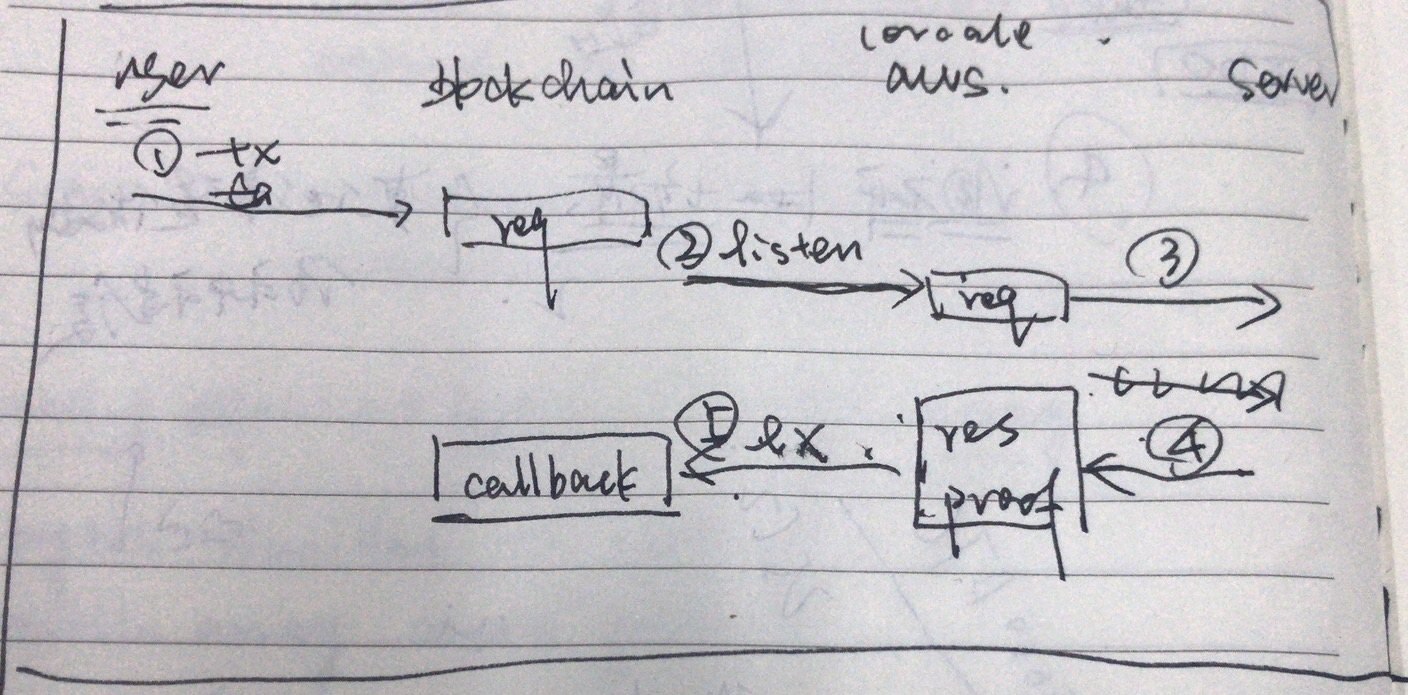 user blockchain aws. Server
① tx
req
② listen
req
③
callback
⑤ tx
res
proof
④